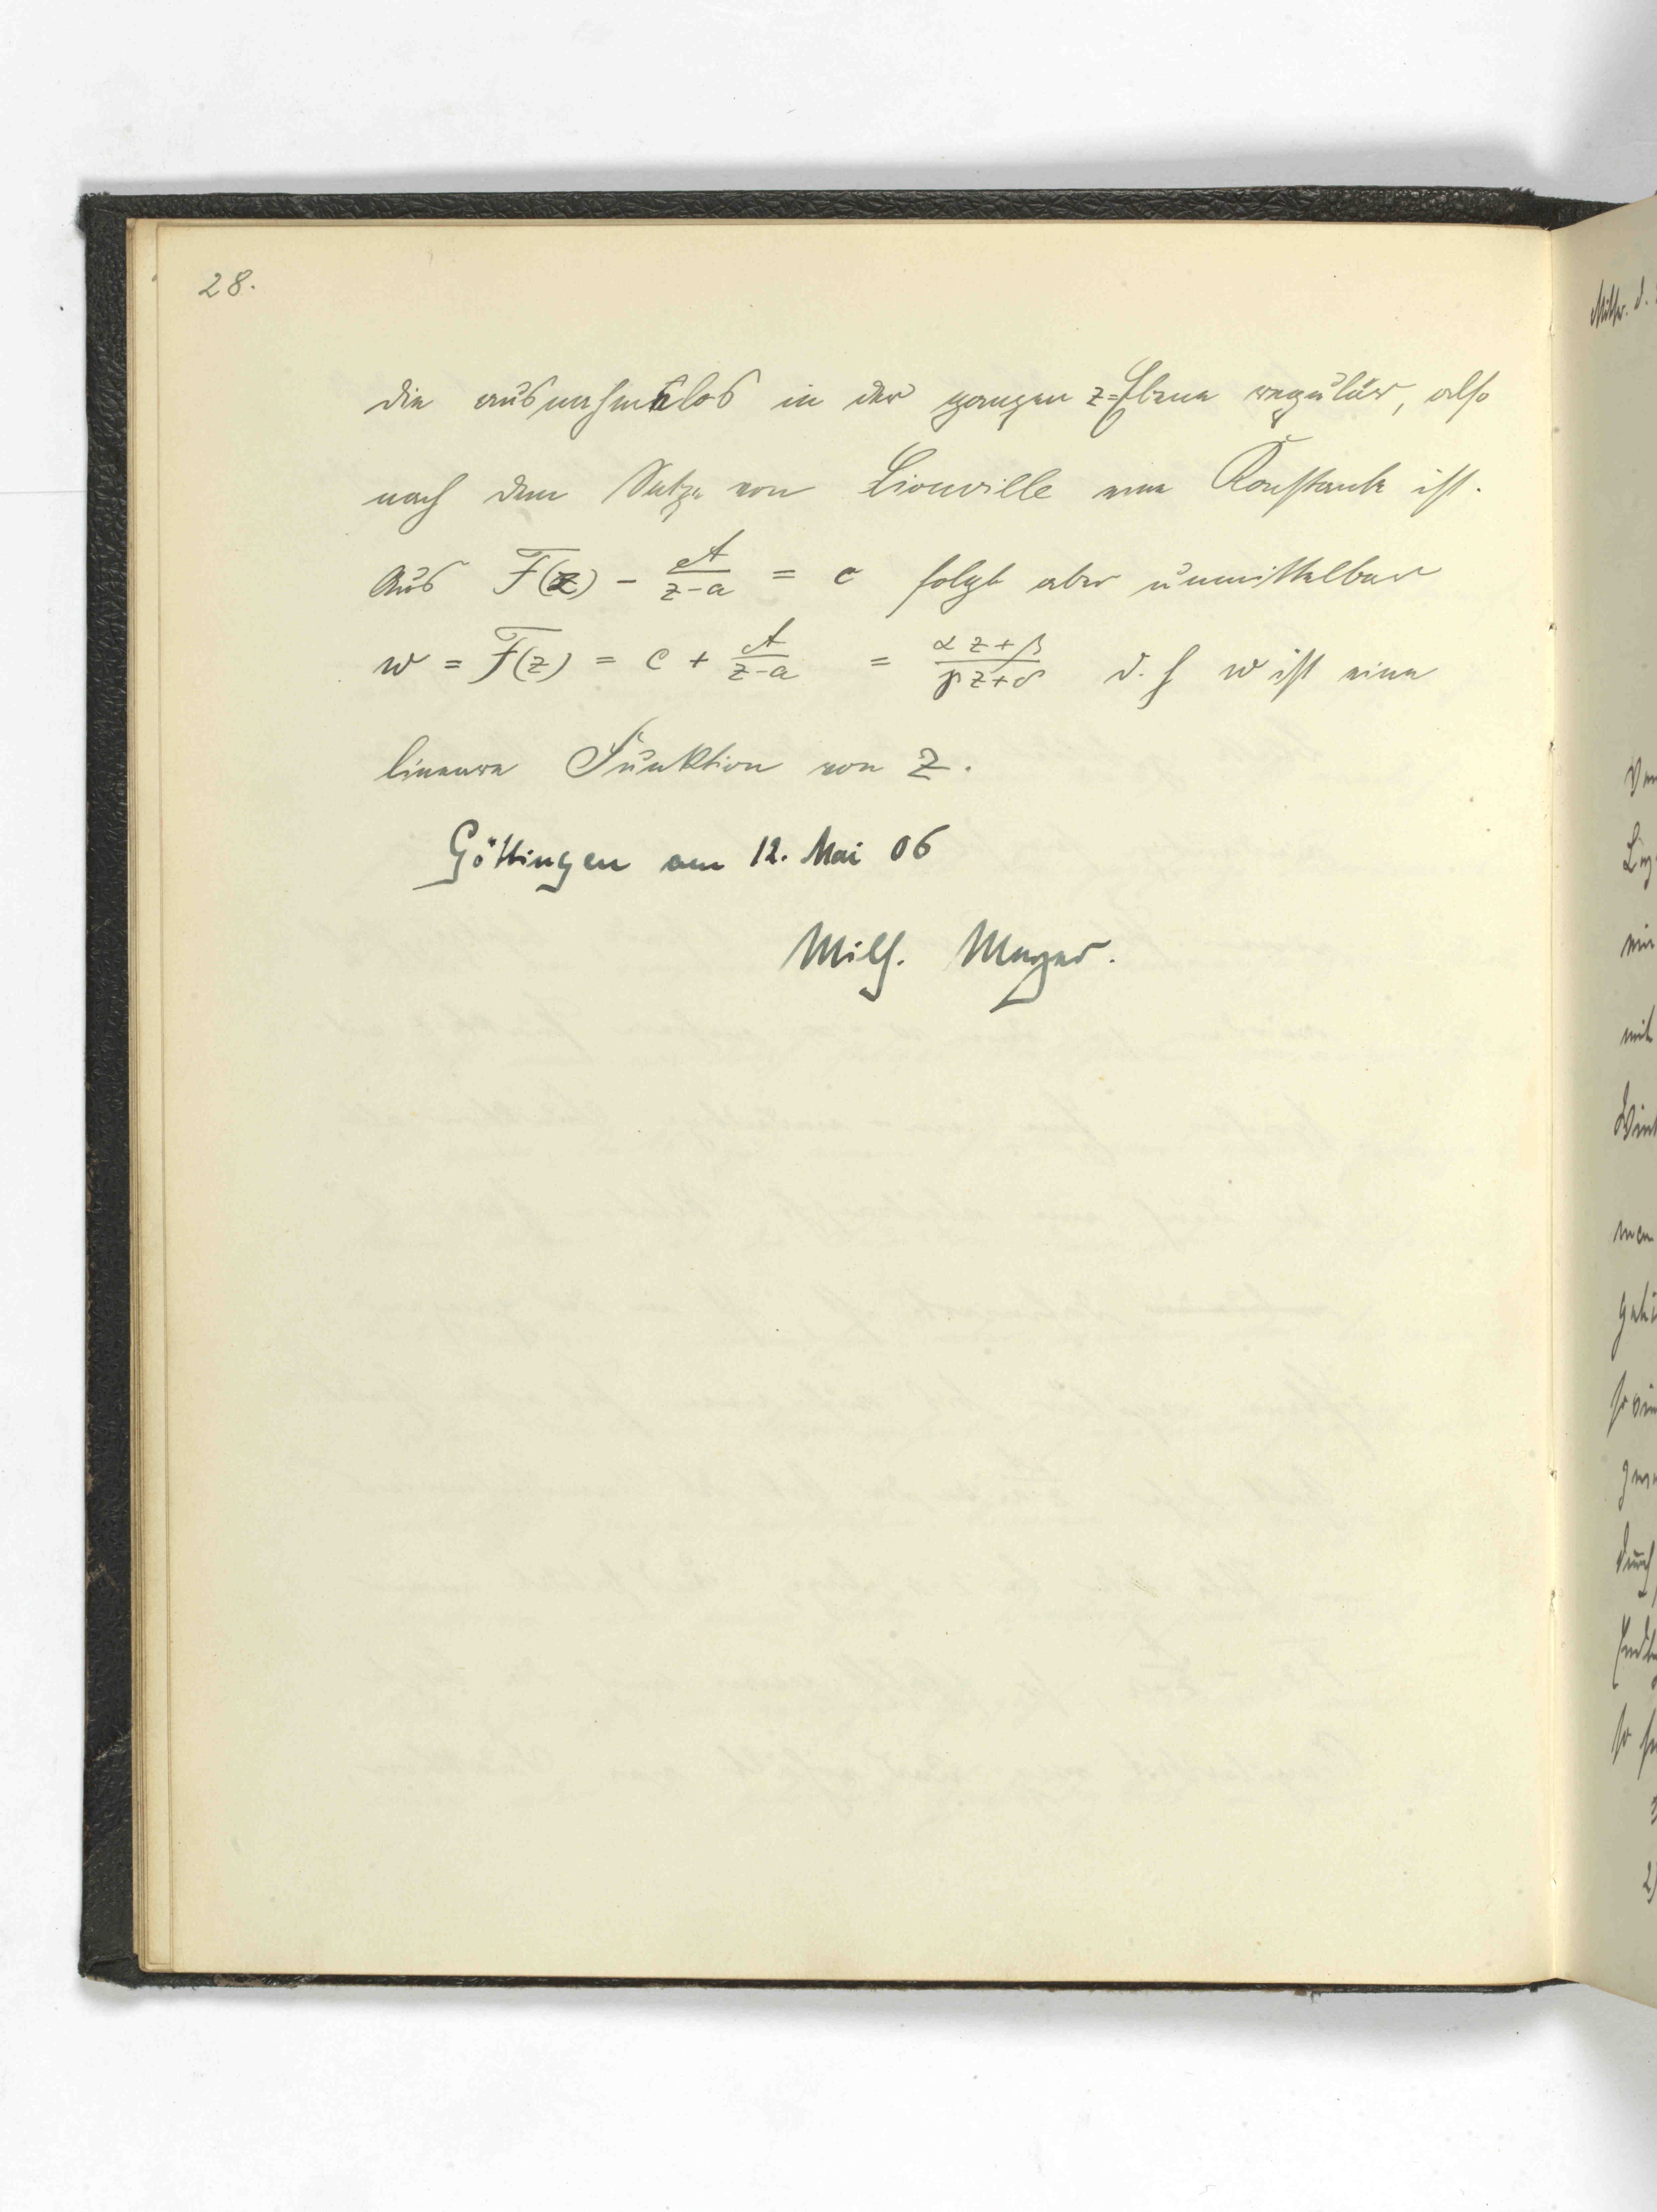 28.
die ausnahmslos in der ganzen z=Ebene regulär, also
nach dem Satze von Liouville eine Konstante ist.
Aus F(z) - A/(z-a) = c folgt aber unmittelbar
w = F(z) = c + A/(z-a) = (αz+β)/(γz+δ) d.h w ist eine
lineare Funktion von z.
Göttingen am 12. Mai 06
Wilh. Meyer.